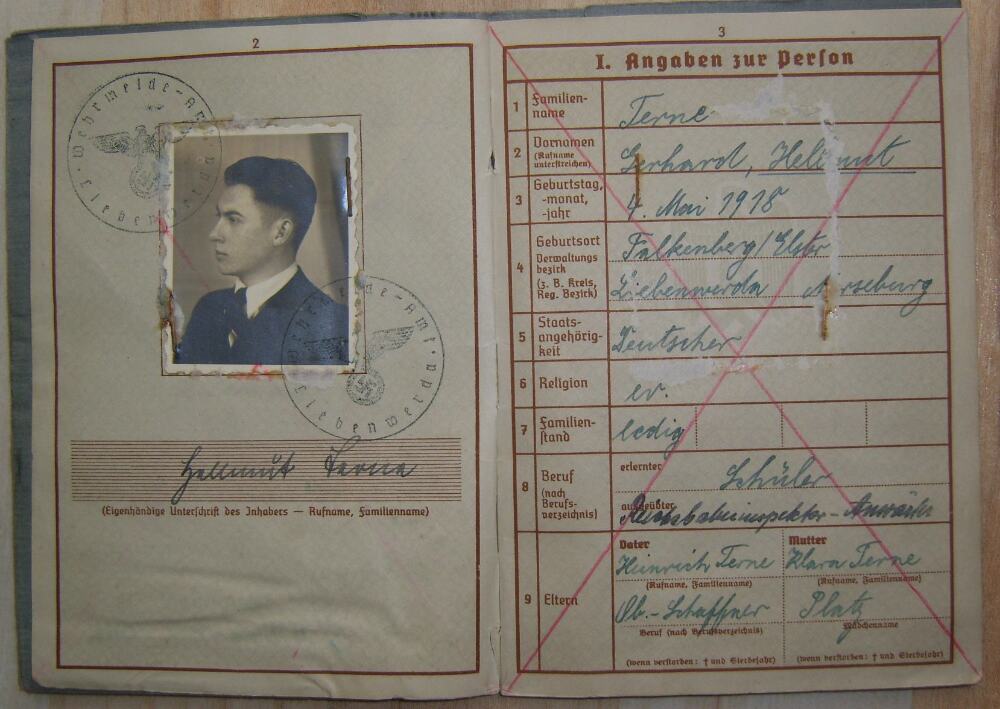 2
Wehrmelde-Amt
Liebenwerda
Wehrmelde-Amt
Liebenwerda
Hellmut Terne
(Eigenhändige Unterschrift des Inhabers — Rufname, Familienname)
3
I. Angaben zur Person
1 Familien-
name
Terne
2 Vornamen
(Rufname
unterstreichen)
Gerhard, Hellmut
3 Geburtstag,
-monat,
-jahr
4. Mai 1918
4 Geburtsort
Verwaltungs
bezirk
(z. B. Kreis,
Reg. Bezirk)
Falkenberg/Elster
Liebenwerda Merseburg
5 Staats-
angehörig-
keit
Deutscher
6 Religion
ev.
7 Familien-
stand
ledig
8 Beruf
(nach
Berufs-
verzeichnis)
erlernter
Schüler
ausgeübter
Reichsbahninspektor-Anwärter
9 Eltern
Vater
Heinrich Terne
(Rufname, Familienname)
Ob.-Schaffner
Beruf (nach Berufsverzeichnis)
(wenn verstorben: † und Sterbejahr)
Mutter
Klara Terne
(Rufname, Familienname)
Platz
Mädchenname
(wenn verstorben: † und Sterbejahr)